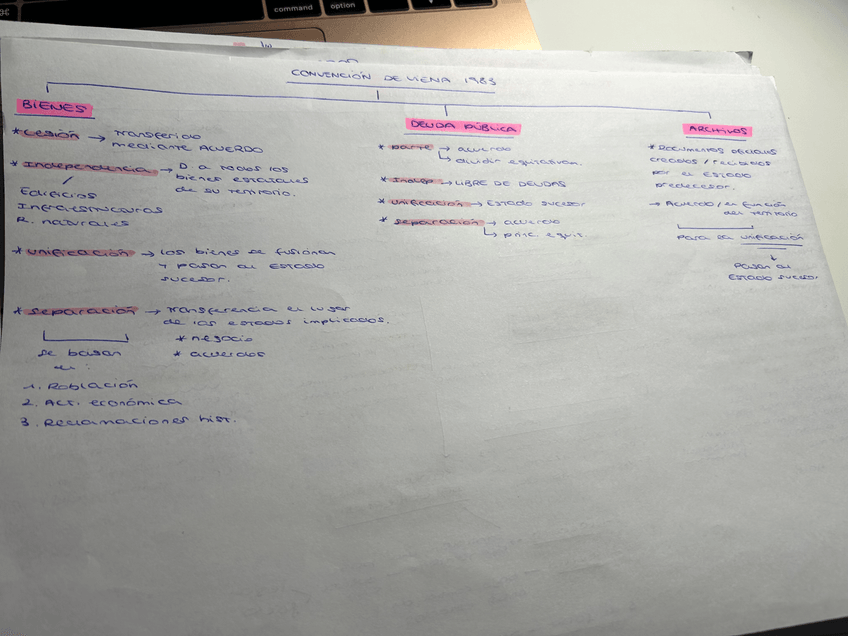 command
option
CONVENCIÓN DE VIENA 1983
BIENES
* Cesión → Transferido
mediante ACUERDO
* Independencia → D. a todos los
bienes estatales
de su territorio.
Edificios
Infraestructuras
R. naturales
* unificación → Los bienes se fusionan
y pasan al ESTADO
sucesor.
* separación → Transferencia el lugar
de las estados implicados.
* negocio
* acuerdos
se basan
en:
1. Población
2. Act. económica
3. Reclamaciones hist.
DEUDA PÚBLICA
* parte → acuerdo
↳ dividir equitativam.
* Indep → LIBRE DE DEUDAS
* unificación → ESTADO sucesor
* separación → acuerdo
↳ princ. equit.
ARCHIVOS
* Documentos oficiales
creados / recibidos
por el ESTADO
predecesor.
→ Acuerdo / en función
del territorio
Para la unificación
↓
Pasan al
ESTADO sucesor